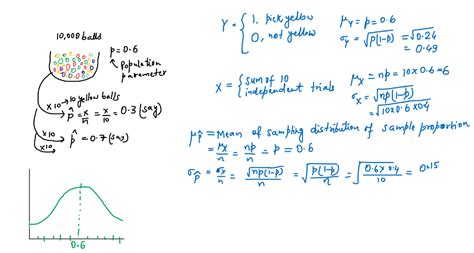 10,000 balls
p = 0.6
Population
parameter
×10 → 10 yellow balls
p̂ = x/n = x/10 = 0.3 (say)
×10
p̂ = 0.7 (say)
×10
0.6
Y = { 1, pick yellow
0, not yellow
μY = p = 0.6
σY = √p(1-p) = √0.24
= 0.49
X = { sum of 10
independent trials
μX = np = 10×0.6 = 6
σX = √np(1-p)
= √10×0.6×0.4
μp̂ = Mean of sampling distribution of sample proportion
= μX/n = np/n = p = 0.6
σp̂ = σX/n = √np(1-p)/n = √p(1-p)/n = √0.6×0.4/10 = 0.15